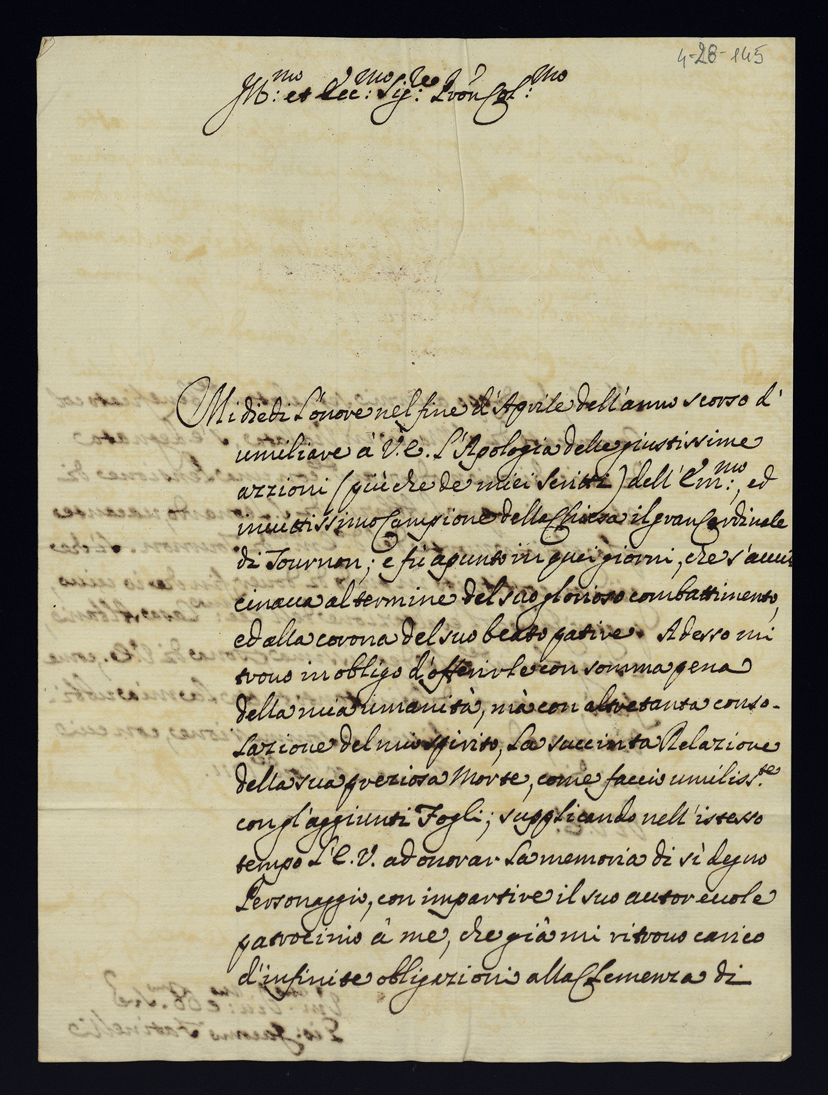 4-28-145
Ill:mo et Ecc:mo Sig:re Pron Col:mo
Mi diedi l'onore nel fine d'Aprile dell'anno scorso d'
umiliare à V.E. l'Apologia delle giustissime
azzioni (più che de miei scritti) dell'Em:mo, ed
invittissimo Campione della Chiesa il gran Cardinale
di Tournon; e fù apunto in quei giorni, che s'avvi
cinava al termine del suo glorioso combattimento,
ed alla corona del suo beato patire. Adesso mi
trovo in obligo d'offerirle con somma pena
della mia umanità, mà con altretanta conso-
lazione del mio spirito, la succinta Relazione
della sua preziosa Morte, come faccio umiliss:te
con gl'aggiunti Fogli; supplicando nell'istesso
tempo l'E.V. ad onorar la memoria di sì degno
Personaggio, con impartire il suo autorevole
patrocinio à me, che già mi ritrovo carico
d'infinite obligazioni alla Clemenza di